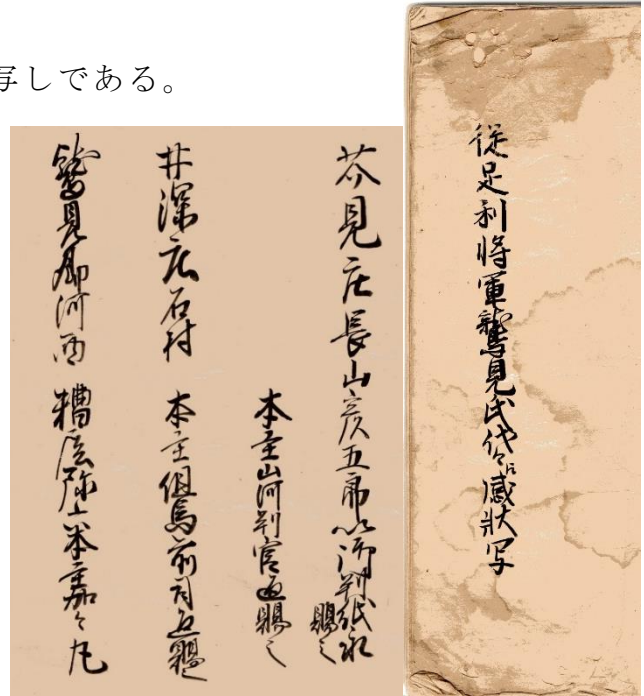 写しである。
従足利将軍鷲見氏代々ニ感状写
芥見庄長山彦五郎以御判紙水
賜之
本主山河判官返賜之
井深庄石村
本主但馬前司返賜之
鷲見郷河西
糟庄弥上本主加々丸